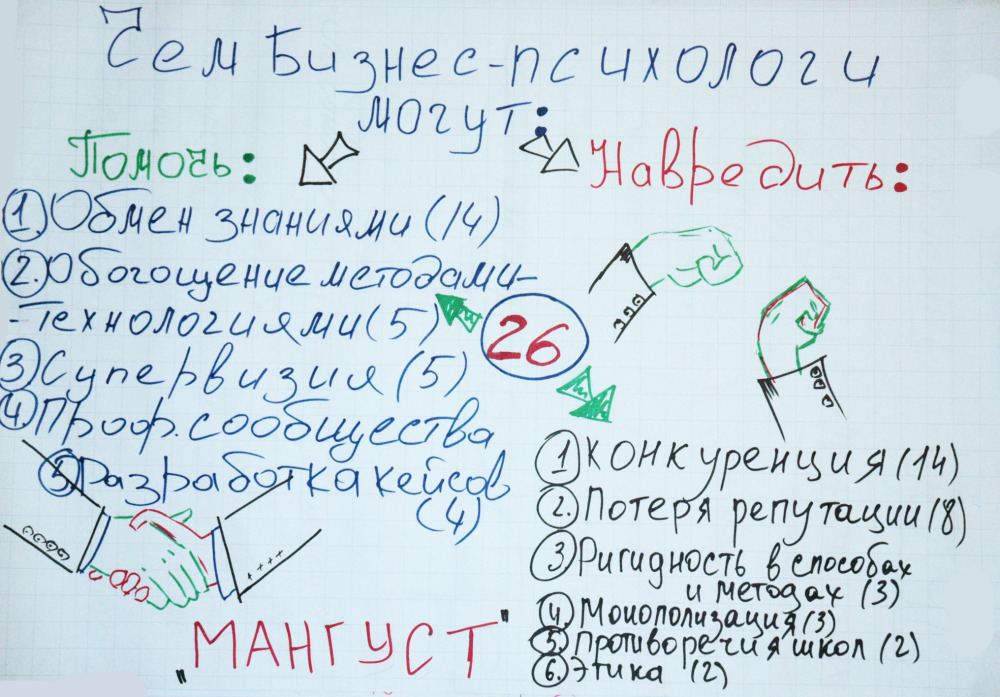 Чем Бизнес-психологи
могут:
Помочь:
1. Обмен знаниями (14)
2. Обогощение методами-
-технологиями (5)
3 Супервизия (5)
4. Проф. сообщества
5 Разработка кейсов
(4)
"МАНГУСТ"
26
Навредить:
1 Конкуренция (14)
2. Потеря репутации (8)
3 Ригидность в способах
и методах (3)
4. Монополизация (3)
5. Противоречия школ (2)
6. Этика (2)